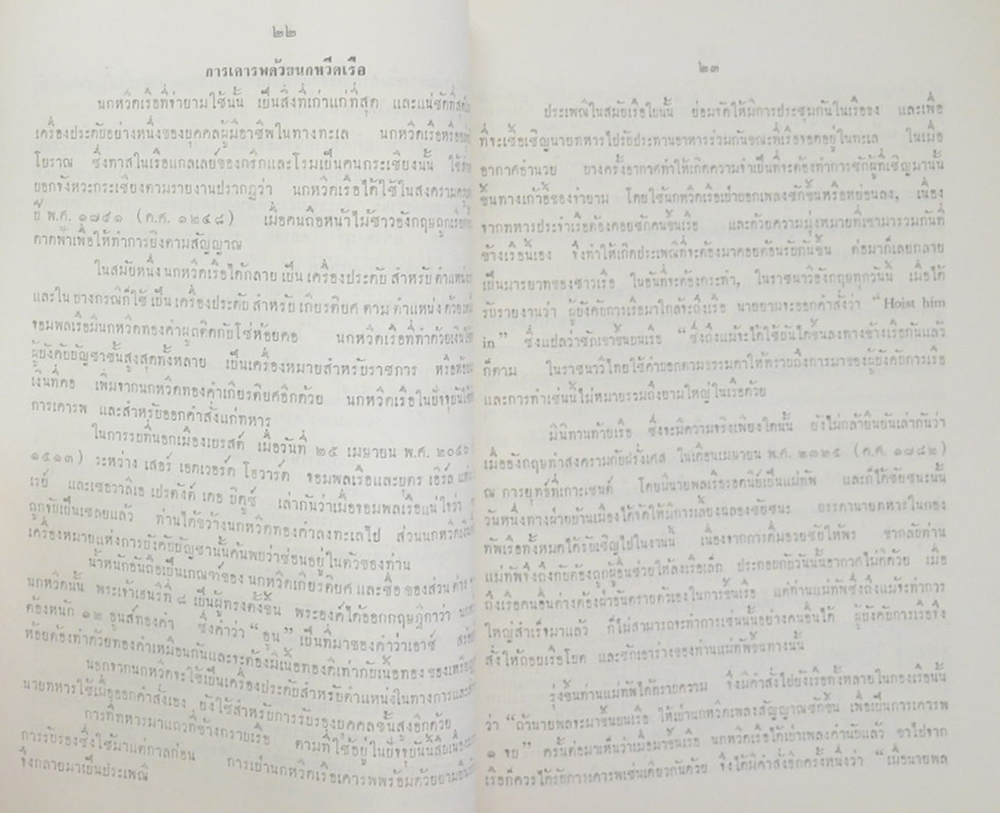 ๒๒
การเคารพด้วยนกหวีดเรือ
นกหวีดเรือที่จ่ายามใช้นั้น เป็นสิ่งที่เก่าแก่ที่สุด และแน่ชัดที่สุด
เครื่องประดับอย่างหนึ่งของบุคคลผู้มีอาชีพในทางทะเล นกหวีดเรือหรือ
โบราณ ซึ่งทาสในเรือแกลเลย์ของกรีกและโรมเป็นคนกระเชียงนั้น ใช้
บอกจังหวะกระเชียงตามรายงานปรากฏว่า นกหวีดเรือได้ใช้ในสงคราม
ปี พ.ศ. ๑๗๙๑ (ค.ศ. ๑๒๔๘) เมื่อคนถือหน้าไม้ชาวอังกฤษถูก
ดาดฟ้าเพื่อให้ทำการยิงตามสัญญาณ
ในสมัยหนึ่งนกหวีดเรือได้กลาย เป็น เครื่องประดับ สำหรับ ตำแหน่ง
และใน บางกรณีก็ใช้ เป็น เครื่องประดับ สำหรับ เกียรติยศ ตาม ตำแหน่ง ด้วย
จอมพลเรือมีนกหวีดทองคำผูกติดกับโซ่ห้อยคอ นกหวีดเรือที่ทำด้วยเงิน
ผู้บังคับบัญชาชั้นสูงสุดทั้งหลาย เป็นเครื่องหมายสำหรับราชการ หรือห้อย
เงินที่คอ เพิ่มจากนกหวีดทองคำเกียรติยศอีกด้วย นกหวีดเรือในปัจจุบันใช้
การเคารพ และสำหรับออกคำสั่งแก่ทหาร
ในการรบที่นอกเมืองเบรสต์ เมื่อวันที่ ๒๕ เมษายน พ.ศ. ๒๐๕๖
๑๕๑๓) ระหว่าง เสอร์ เอดเวอร์ด โฮวาร์ด จอมพลเรือและบุตร เอิร์ล แห่ง
เรย์ และเชอวาลิเอ เปรดังต์ เดอ บิดูซ์ เล่ากันว่าเมื่อจอมพลเรือแน่ใจว่า
ถูกจับเป็นเชลยแล้ว ท่านได้ขว้างนกหวีดทองคำลงทะเลไป ส่วนนกหวีดเงิน
เครื่องหมายแห่งการบังคับบัญชานั้นค้นพบว่าซ่อนอยู่ในตัวของท่าน
น้ำหนักอันถือเป็นเกณฑ์ของ นกหวีดเกียรติยศ และชื่อ ของส่วน ต่าง ๆ
นกหวีดนั้น พระเจ้าเฮนรีที่ ๘ เป็นผู้ทรงตั้งขึ้น พระองค์ได้ออกกฤษฎีกาว่า
ต้องหนัก ๑๒ อูนส์ทองคำ ซึ่งคำว่า “อูน” เป็นที่มาของคำว่าเอาซ์
ห้อยต้องทำด้วยทองคำเหมือนกันและจะต้องมีเนื้อทองดีเท่ากับเนื้อทอง ของเหรียญ
นอกจากนกหวีดจะใช้เป็นเครื่องประดับสำหรับตำแหน่งในทางการและ
นายทหารใช้เมื่อออกคำสั่งเอง ยังใช้สำหรับการรับรองบุคคลชั้นสูงอีกด้วย
การที่ทหารมาแถวที่ข้างกราบเรือ ตามที่ใช้อยู่ในปัจจุบันสืบเนื่อง
การรับรองซึ่งใช้มาแต่กาลก่อน การเป่านกหวีดเรือเคารพพร้อมด้วยยาม
จึงกลายมาเป็นประเพณี
๒๓
ประเพณีในสมัยเรือใบนั้น ย่อมจัดให้มีการประชุมกันในเรือธง และเพื่อ
ที่จะเชื้อเชิญนายทหารไปรับประทานอาหารร่วมกันขณะที่เรือจอดอยู่ในทะเล ในเมื่อ
อากาศอำนวย บางครั้งอากาศทำให้เกิดความจำเป็นที่จะต้องทำการชักผู้ที่เชิญมานั้น
ขึ้นทางเก้าอี้ของจ่ายาม โดยใช้นกหวีดเรือเป่าบอกเพลงชักขึ้นหรือหย่อนลง, เนื่อง
จากทหารประจำเรือต้องคอยชักคนขึ้นเรือ และด้วยความมุ่งหมายที่เขามารวมกันที่
ข้างเรือนี้เอง จึงทำให้เกิดประเพณีที่จะต้องมาคอยต้อนรับกันขึ้น ต่อมาก็เลยกลาย
เป็นมารยาทของชาวเรือ ในอันที่จะต้องกระทำ, ในราชนาวีอังกฤษทุกวันนี้ เมื่อได้
รับรายงานว่า ผู้บังคับการเรือมาใกล้จะถึงเรือ นายยามจะออกคำสั่งว่า “Hoist him
in” ซึ่งแปลว่าชักเขาขึ้นบนเรือ “ซึ่งถึงแม้จะได้ใช้บันไดขึ้นลงทางข้างเรือกันแล้ว
ก็ตาม ในราชนาวีไทยใช้คำบอกตามธรรมดาให้ทราบถึงการมาของผู้บังคับการเรือ
และการทำเช่นนี้ไม่หมายรวมถึงยามใหญ่ในเรือด้วย
มีนิทานท้ายเรือ ซึ่งจะมีความจริงเพียงใดนั้น ยังไม่กล้ายืนยันเล่ากันว่า
เมื่ออังกฤษทำสงครามกับฝรั่งเศส ในเดือนเมษายน พ.ศ. ๒๓๒๕ (ค.ศ. ๑๗๘๒)
ณ การยุทธ์ที่เกาะเซนต์ โดยมีนายพลเรือรอดนีย์เป็นแม่ทัพ และก็ได้ชัยชนะนั้น
วันหนึ่งทางฝ่ายบ้านเมืองได้จัดให้มีการเลี้ยงฉลองชัยชนะ บรรดานายทหารในกอง
ทัพเรือทั้งหมดได้รับเชิญไปในงานนี้ เนื่องจากการดื่มอวยชัยให้พร ขากลับท่าน
แม่ทัพจึงถึงกับต้องถูกผู้อื่นช่วยให้ลงเรือเล็ก ประกอบกับวันนั้นอากาศไม่ดีด้วย เมื่อ
ถึงเรือคนอื่นต่างต้องฝ่าอันตรายตัวเองในการขึ้นเรือ แต่ท่านแม่ทัพซึ่งถึงแม้จะทำการ
ใหญ่สำเร็จมาแล้ว ก็ไม่สามารถจะทำการเช่นนั้นอย่างคนอื่นได้ ผู้บังคับการเรือจึง
สั่งให้ถอยเรือโบต และชักเอาร่างของท่านแม่ทัพขึ้นทางนั้น
รุ่งขึ้นท่านแม่ทัพได้ทราบความ จึงมีคำสั่งไปยังเรือทั้งหลายในกองเรือนั้น
ว่า “ถ้านายพลจะมาขึ้นบนเรือ ให้เป่านกหวีดเพลงสัญญาณชักขึ้น เพื่อเป็นการเคารพ
๑ จบ” ครั้นต่อมาเห็นว่าเมื่อมาขึ้นเรือ นกหวีดเรือได้เป่าเพลงคำนับแล้ว ขาไปจาก
เรือก็ควรได้รับการเคารพเช่นเดียวกันด้วย จึงได้มีคำสั่งอีกครั้งหนึ่งว่า “เมื่อนายพล